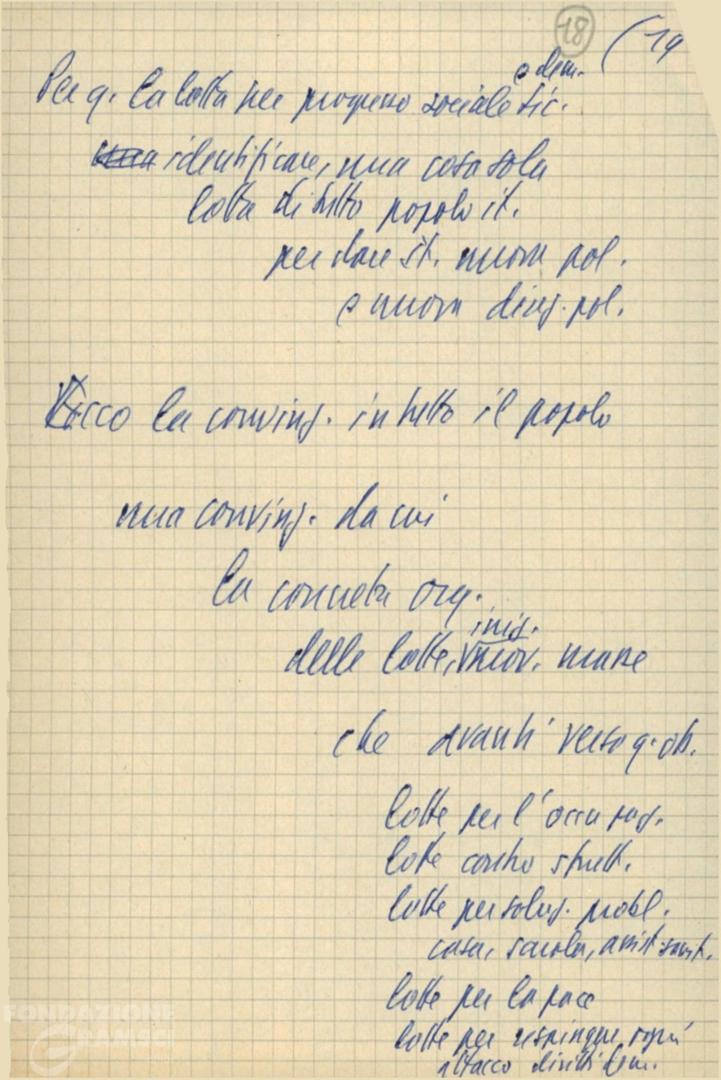 18 (19
e dem.
Per q. la lotta per progresso sociale Sic.
una identificare, una cosa sola
lotta di tutto popolo it.
per dare It. nuova pol.
e nuova direz. pol.
Ecco la convinz. in tutto il popolo
una convinz. da cui
la concreta org.
iniz.
delle lotte, mov. masse
che avanti verso q. ob.
lotte per l'occupaz.
lotte contro sfrutt.
lotte per soluz. probl.
casa, scuola, assist. sanit.
lotte per la pace
lotte per respingere ogni
attacco diritti dem.
FONDAZIONE
GRAMSCI